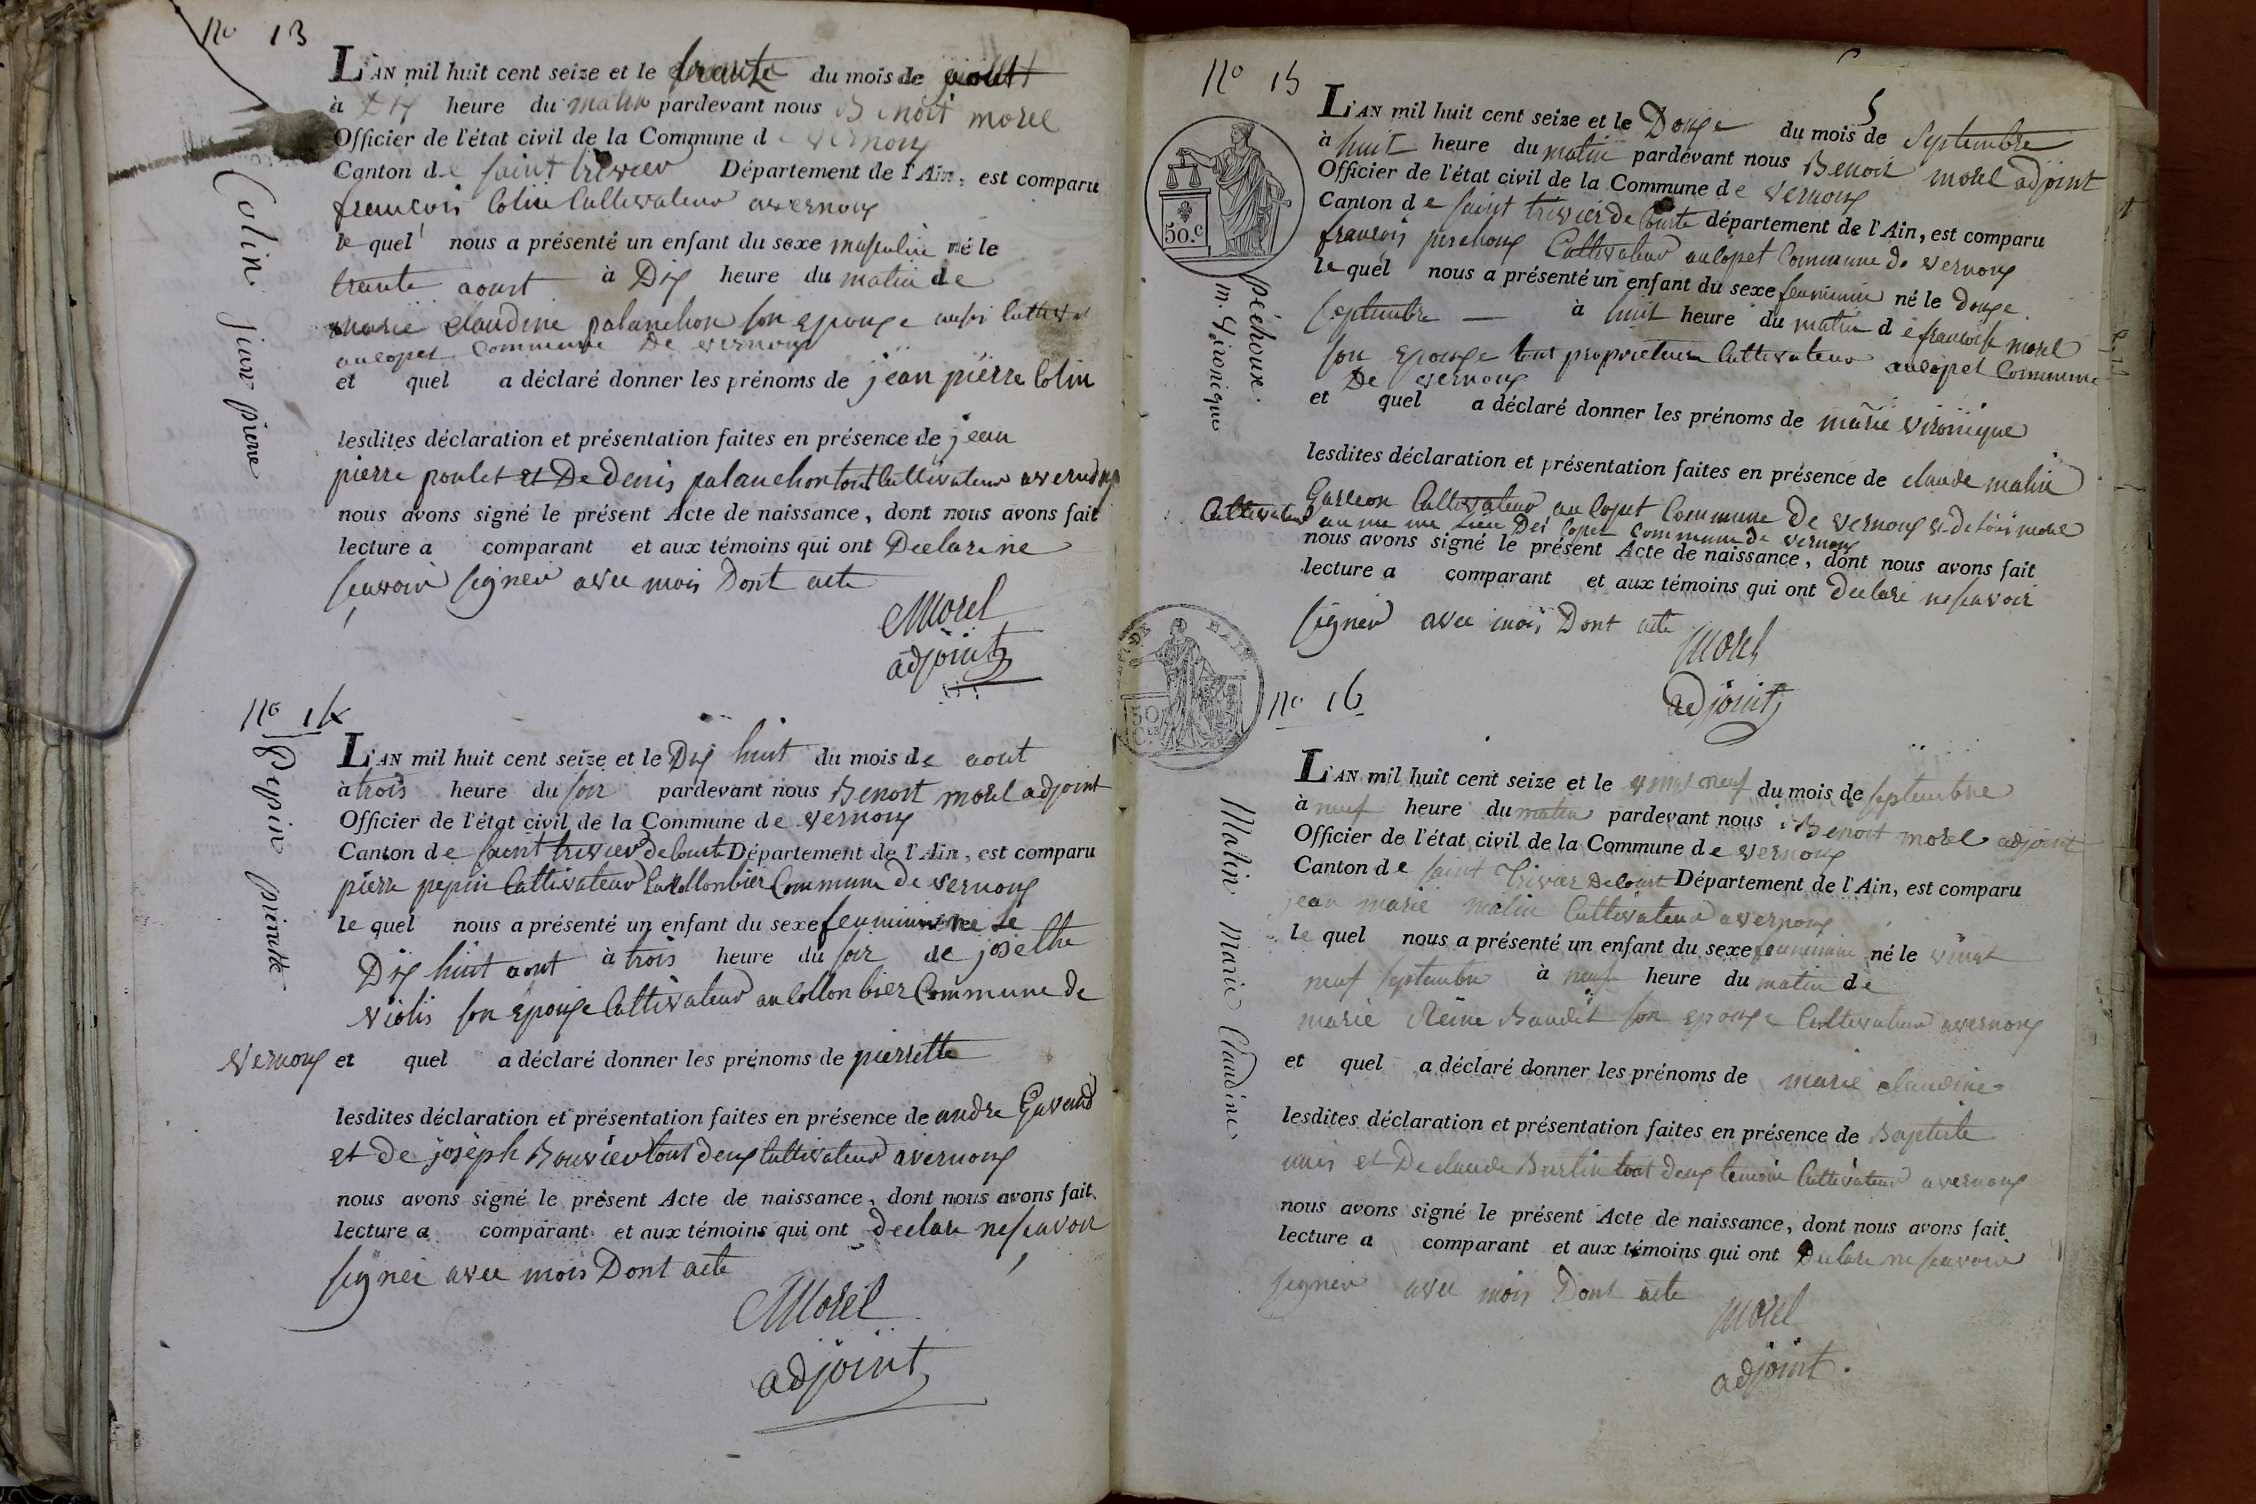 No 13
L'AN mil huit cent seize et le trente du mois de aout
à dix heure du matin pardevant nous Benoit morel
Officier de l'état civil de la Commune de vernoux
Canton de saint trivier Département de l'Ain, est comparu
francois Colin Cultivateur a vernoux
le quel nous a présenté un enfant du sexe masculin né le
trante aoust à Dix heure du matin de
marie claudine palanchon son epouse aussi Cultivat
au copet Commune De vernoux
et quel a déclaré donner les prénoms de jean pierre Colin
lesdites déclaration et présentation faites en présence de jean
pierre poulet et De denis palanchon tout Cultivateur a vernoux
nous avons signé le présent Acte de naissance, dont nous avons fait
lecture a comparant et aux témoins qui ont Declare ne
scavoir signer avec mois Dont acte
Morel
adjoint
Colin jean pierre
No 14
L'AN mil huit cent seize et le Dix huit du mois de aout
à trois heure du soir pardevant nous Benoit morel adjoint
Officier de l'état civil de la Commune de vernoux
Canton de saint trivier de Courte Département de l'Ain, est comparu
pierre pepin Cultivateur au Collonbier Commune de vernoux
le quel nous a présenté un enfant du sexe feminine né le
Dix huit aout à trois heure du soir de josethe
violis son epouse Cultivateur au Collonbier Commune de
vernoux et quel a déclaré donner les prénoms de pierrette
lesdites déclaration et présentation faites en présence de andre Gavand
et de joseph Bouvier tout deux Cultivateur a vernoux
nous avons signé le présent Acte de naissance, dont nous avons fait
lecture a comparant et aux témoins qui ont declare ne scavoir
signer avec mois Dont acte
Morel
adjoint
Pepin pierrette
No 15
5
L'AN mil huit cent seize et le Douze du mois de Septembre
à huit heure du matin pardevant nous Benoit morel adjoint
Officier de l'état civil de la Commune de vernoux
Canton de saint trivier de Courte département de l'Ain, est comparu
francois peschoux Cultivateur au Copet Commune de vernoux
le quel nous a présenté un enfant du sexe feminine né le douze
septembre à huit heure du matin de francoise morel
son epouse tout proprietere Cultivateur au Copet Commune
De vernoux
et quel a déclaré donner les prénoms de marie vironique
lesdites déclaration et présentation faites en présence de claude matin
Garcon Cultivateur au Copet Commune De vernoux & de morel
Cultivateur au me me Lieu Des Copet Commune de vernoux
nous avons signé le présent Acte de naissance, dont nous avons fait
lecture a comparant et aux témoins qui ont declare ne scavoir
signer avec mois Dont acte
Morel
adjoint
50.c
péchoux.
m. vironique
No 16
L'AN mil huit cent seize et le vingt neuf du mois de septembre
à neuf heure du matin pardevant nous Benoit morel adjoint
Officier de l'état civil de la Commune de vernoux
Canton de saint Trivier De Court Département de l'Ain, est comparu
jean marie matin Cultivateur a vernoux
le quel nous a présenté un enfant du sexe feminine né le vingt
neuf septembre à neuf heure du matin de
marie Reine Baudet son epouse Cultivateur a vernoux
et quel a déclaré donner les prénoms de marie claudine
lesdites déclaration et présentation faites en présence de Baptiste
et De claude Burtin tout deux temoin Cultivateur a vernoux
nous avons signé le présent Acte de naissance, dont nous avons fait
lecture a comparant et aux témoins qui ont Declare ne scavoir
signer avec mois Dont acte
Morel
adjoint.
Matin marie Claudine